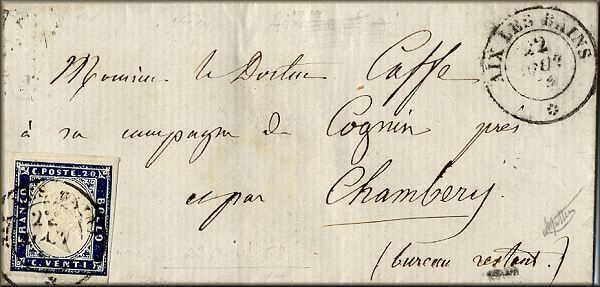 Monsieur le Docteur Caffe
à sa campagne de Cognin près
et par Chambery
(bureau restant.)
AIX LES BAINS
22
AOUT
C. POSTE. 20
FRANCO
BOLLO
C. VENTI
22